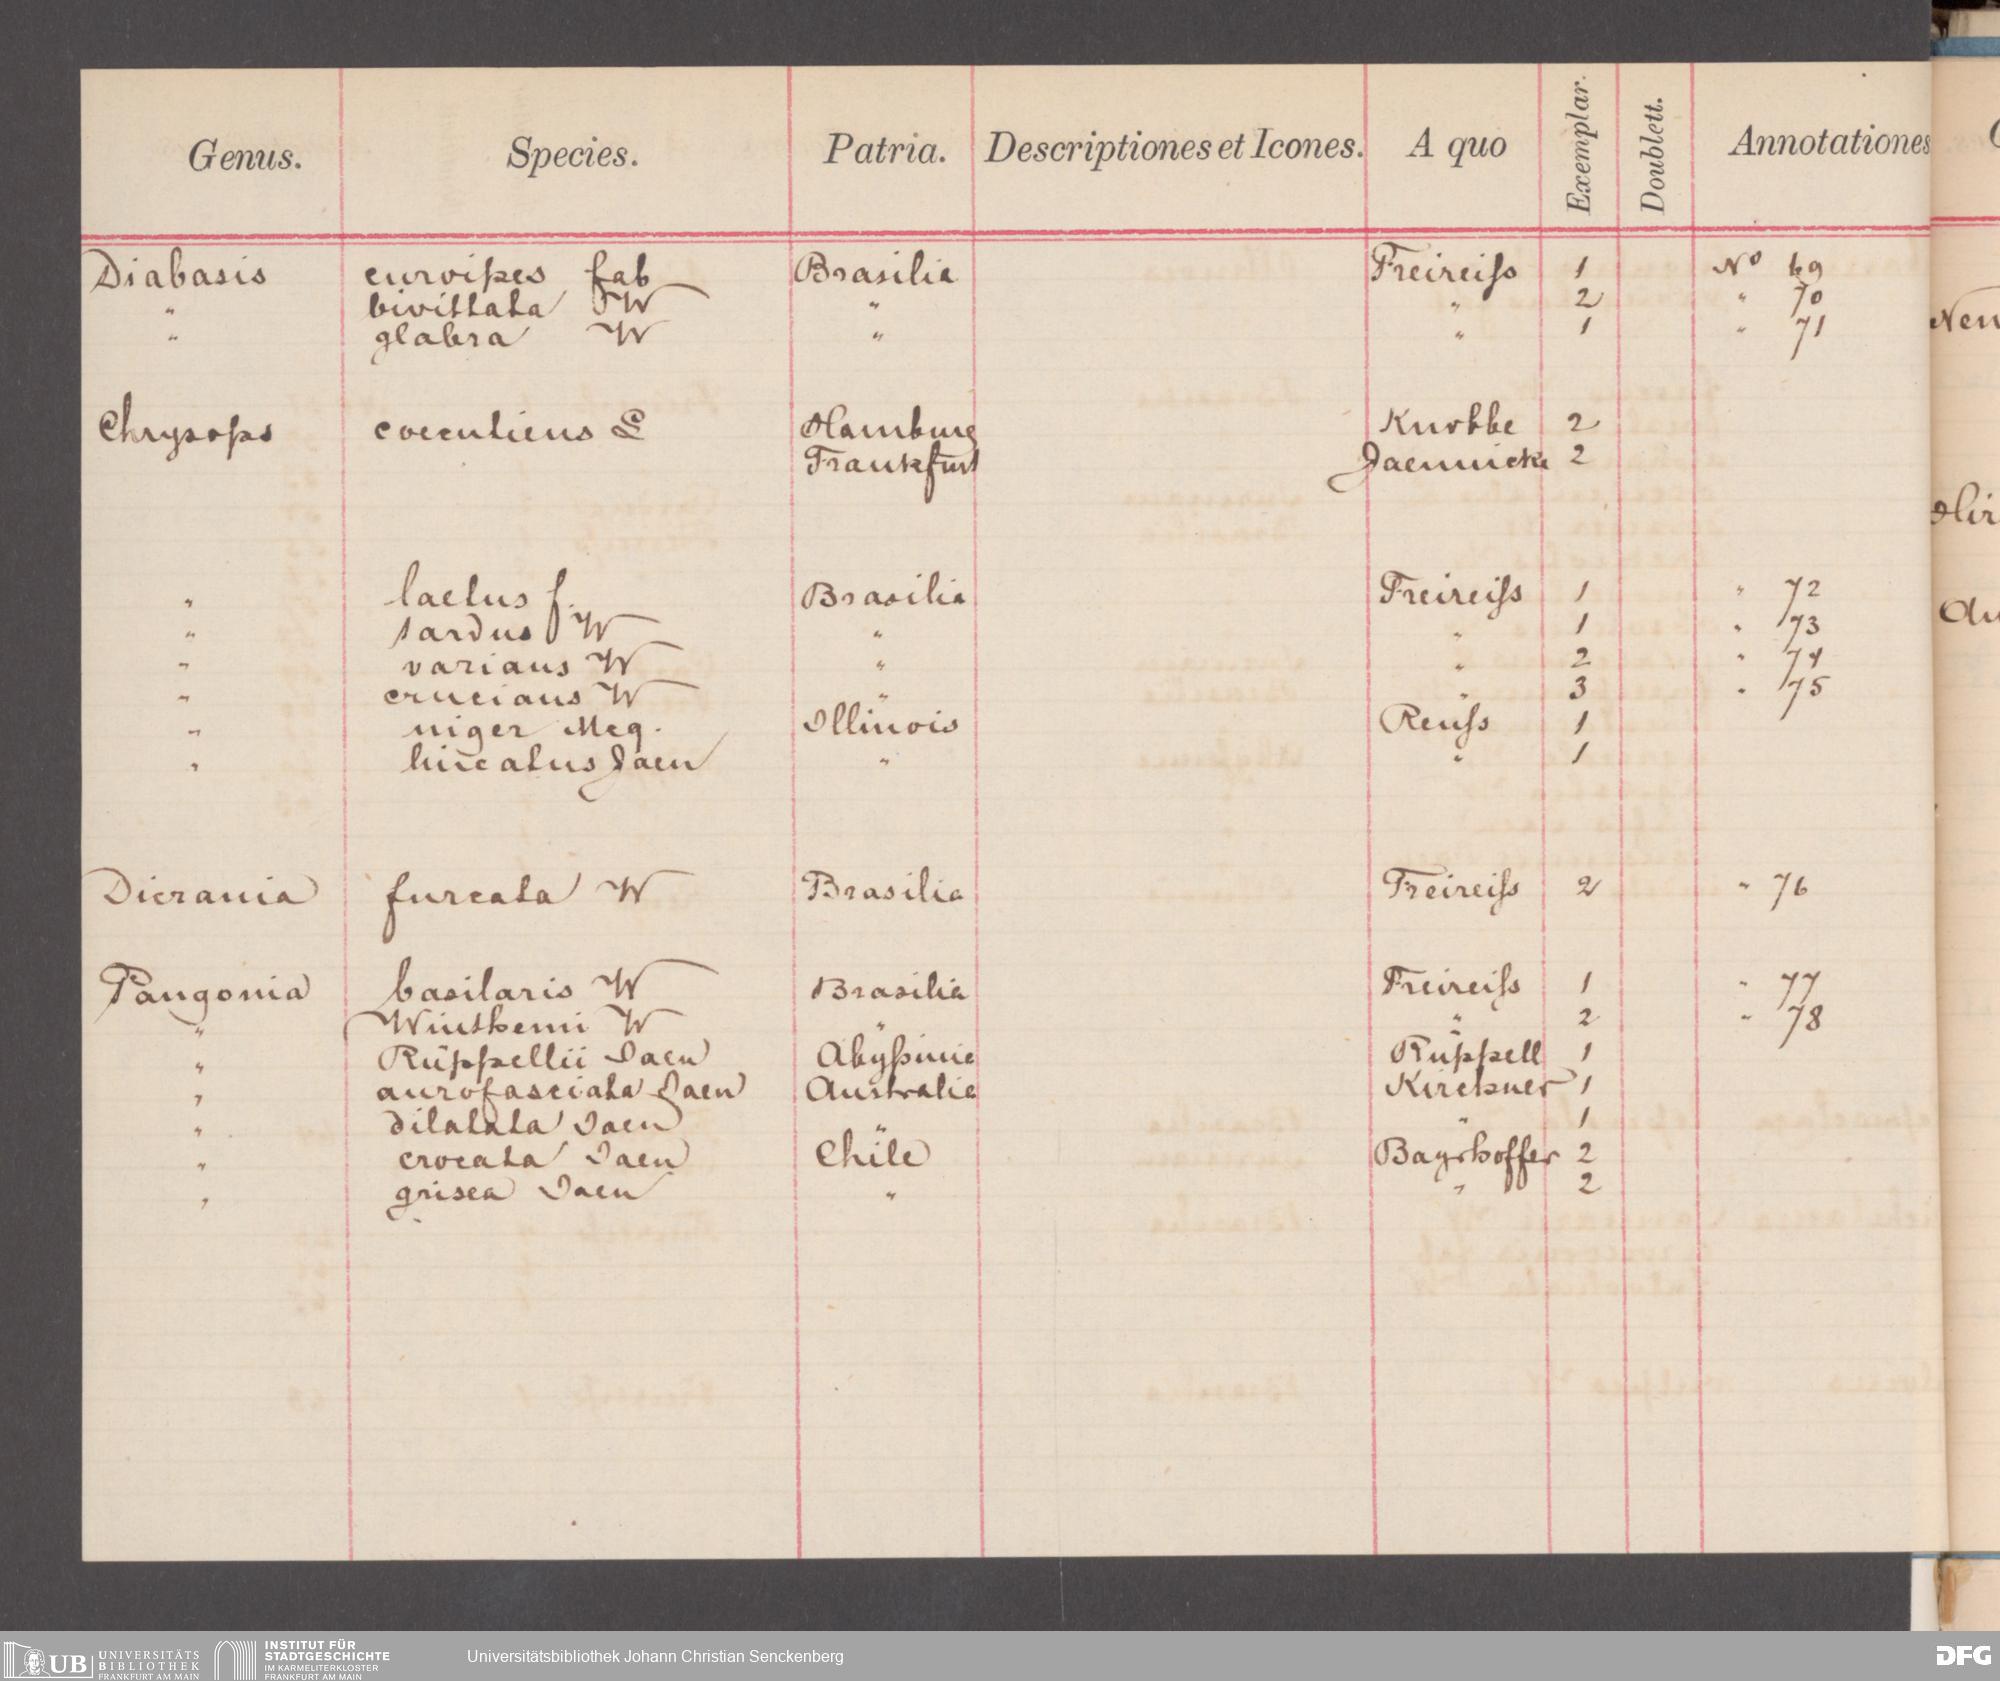 Genus. Species. Patria. Descriptiones et Icones. A quo Exemplar. Doublett. Annotationes
Diabasis curvipes fab Brasilia Freireiſs 1 No 69
" bivittata W " " 2 " 70
" glabra W " " 1 " 71
Chrysops coecutiens L Hamburg 2
Frankfurt Jaennicke 2
" laetus f. Brasilia Freireiſs 1 " 72
" tardus W " " 1 " 73
" varians W " " 2 " 74
" crucians W " " 3 " 75
" niger Meg. Illinois Reuſs 1
" Jaen " " 1
Dicrania furcata W Brasilia Freireiſs 2 " 76
Pangonia basilaris W Brasilia Freireiſs 1 " 77
" Winthemi W " " 2 " 78
" Rüppellii Jaen Abyßinia Rüppell 1
" aurofasciata Jaen Australia Kirchner 1
" dilatata Jaen " " 1
" crocata Jaen Chile Bayrhoffer 2
" grisea Jaen " " 2
UB UNIVERSITÄTS BIBLIOTHEK FRANKFURT AM MAIN
INSTITUT FÜR STADTGESCHICHTE IM KARMELITERKLOSTER FRANKFURT AM MAIN
Universitätsbibliothek Johann Christian Senckenberg
DFG